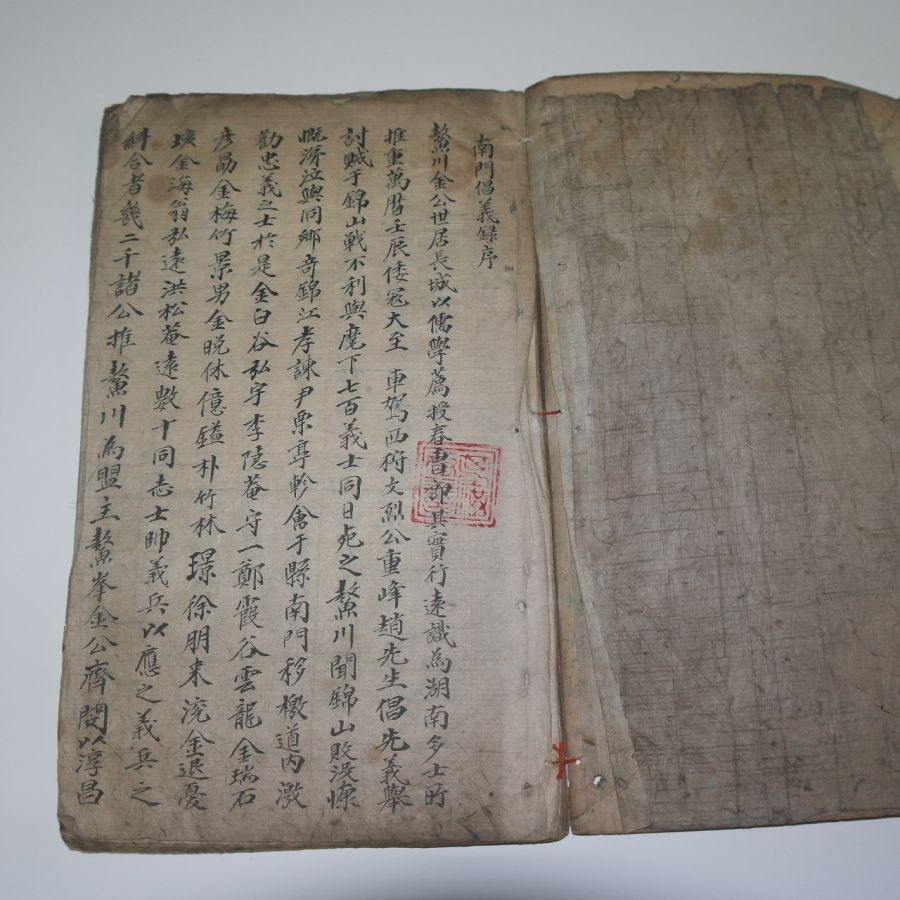 南門倡義録序
鰲川金公世居長城以儒學薦授春曹郎其實行遠識為湖南多士所
推重萬曆壬辰倭冦大至 車駕西狩文烈公重峰趙先生倡先義舉
討賊于錦山戰不利與麾下七百義士同日死之鰲川聞錦山敗沒慷
慨涕泣與同鄉奇錦江孝諫尹栗亭軫會于縣南門移檄道內激
勸忠義之士於是金白谷弘宇李隱菴守一鄭霞谷雲龍金瑞石
彦勗金梅竹景男金晩休億鎰朴竹林璟徐朋来浣金退憂
㻶金海翁弘遠洪松菴遠數十同志士帥義兵以應之義兵之
糾合者幾二千諸公推鰲川為盟主鰲峯金公齊閔以淳昌